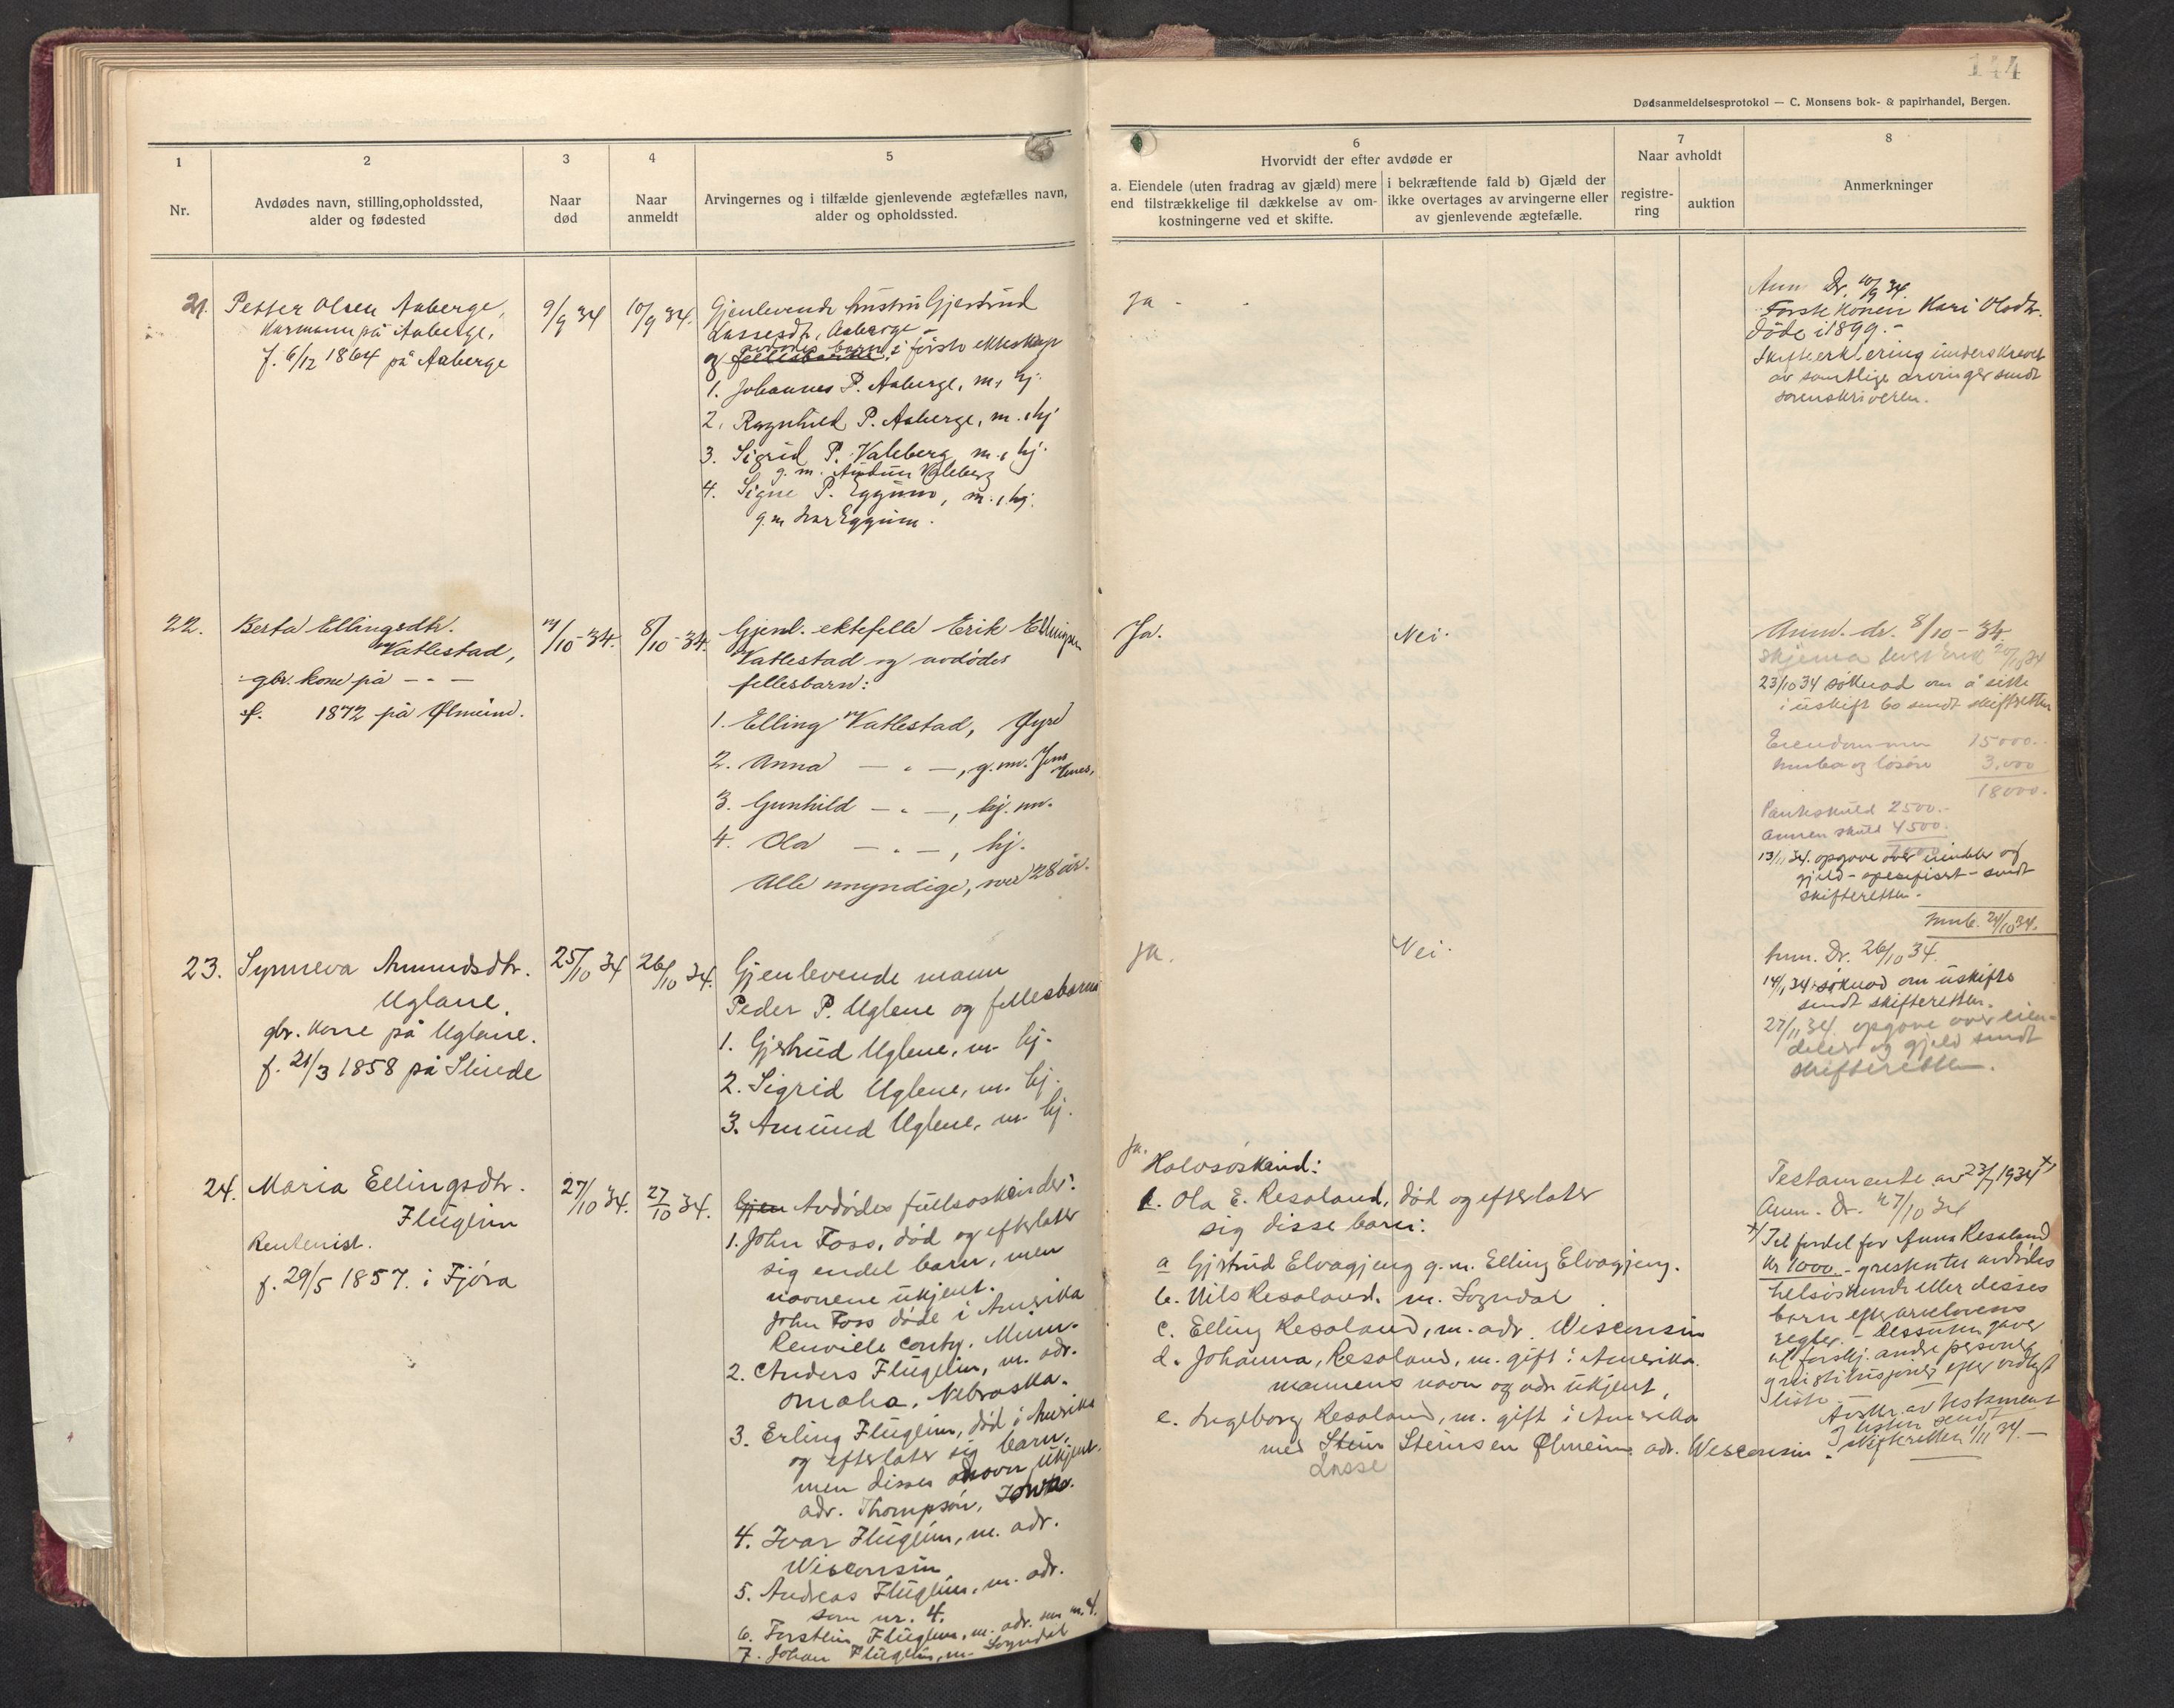 144
Dødsanmeldelsesprotokol — C. Monsens bok- & papirhandel, Bergen.
1
2
3
4
5
6
7
8
Nr.
Avdødes navn, stilling, opholdssted,
alder og fødested
Naar
død
Naar
anmeldt
Arvingernes og i tilfælde gjenlevende ægtefælles navn,
alder og opholdssted.
Hvorvidt der efter avdøde er
a. Eiendele (uten fradrag av gjæld) mere
end tilstrækkelige til dækkelse av om-
kostningerne ved et skifte.
i bekræftende fald b) Gjæld der
ikke overtages av arvingerne eller
av gjenlevende ægtefælle.
Naar avholdt
registre-
ring
auktion
Anmerkninger
21.
Petter Olsen Aaberge,
Kårmann på Aaberge,
f. 6/12 1864 på Aaberge
9/9 34
10/9 34.
Gjenlevende hustru Gjertrud
Lassesdtr. Aaberge
og avdødes barn i første ekteskap
1. Johannes P. Aaberge, m., hj.
2. Ragnhild P. Aaberge, m., hj
3. Sigrid P. Valeberg m., hj.
g. m. Audun Valeberg
4. Signe P. Eggum, m., hj.
g. m. Ivar Eggum.
Ja -
Anm. Dr. 10/9 34.
Første konen Kari Olsdtr.
døde i 1899. -
Skifteerklering underskrevet
av samtlige arvinger sendt
sorenskriveren.
22.
Berta Ellingsdtr.
Vatlestad,
gbr. kone på - " -
f. 1872 på Ølmeim.
/10-34.
8/10-34.
Gjenl. ektefelle Erik Ellingsen
Vatlestad og avdødes
fellesbarn:
1. Elling Vatlestad, Øyre
2. Anna - " -, g. m. Jens
3. Gunhild - " -, hj. m.
4. Ola - " -, hj.
Alle myndige, over 28 år.
Ja.
Nei.
Anm. dr. 8/10-34.
skjema
23/10 34 søknad om å sitte
i uskift bo sendt skifteretten
Eiendommen 15000.-
innbo og løsøre 3.000
18000.
Panteskuld 2500.-
Annen skuld 4500.
13/11 34. opgave over eiendeler og
gjeld - spesifisert - sendt
skifteretten.
23.
Synneva Amundsdtr.
Uglane.
gbr. kone på Uglane.
f. 21/3 1858 på Slinde
25/10 34
26/10 34.
Gjenlevende mann
Peder P. Uglene og fellesbarna
1. Gjertrud Uglene, m. hj.
2. Sigrid Uglene, m. hj.
3. Amund Uglene, m. hj.
Ja.
Nei.
Anm. Dr. 26/10 34.
14/11 34 søknad om uskifte
sendt skifteretten.
27/11 34. opgave over eien-
deler og gjeld sendt
skifteretten.
24.
Maria Ellingsdtr.
Flugeim
Rentenist.
f. 29/5 1857. i Fjøra
27/10 34.
27/10 34.
Gjen Avdødes fullsøskinder:
1. John Foss, død og efterlater
sig endel barn, men
navnene ukjent.
John Foss døde i Amerika
Renville conty. Minn.
2. Anders Flugeim, m. adr.
Omaha, Nebraska.
3. Erling Flugeim, død i Amerika
og efterlater sig barn,
men disses navn ukjent.
adr. Thompson, Iowa.
4. Ivar Flugeim, m. adr.
Wisconsin
5. Andreas Flugeim, m. adr.
som nr. 4.
6. Torstein Flugeim, m. adr. som nr. 4.
7. Johan Flugeim, m. Sogndal
Ja.
Halvsøskend:
1. Ola E. Resaland, død og efterlater
sig disse barn:
a Gjertrud Elvagjeng g. m. Elling Elvagjeng.
b. Nils Resaland. m. Sogndal
c. Elling Resaland, m. adr. Wisconsin
d. Johanna, Resaland, m. gift i Amerika.
mannens navn og adr ukjent,
e. Ingeborg Resaland, m. gift i Amerika
med Stein Steinsen Ølmeim. adr. Wisconsin.
Lasse
Testamente av 23/7 1934 x)
Anm. Dr. 27/10 34
x) Til fordel for Anna Resaland
kr 1000.- resten til avdødes
helsøskende eller disses
barn efter arvelovens
regler. - Dessuten gaver
til forskj. andre personer
institusjoner efter vedlagt
liste.
Avskr. av testament
listen sendt
skifteretten 1/11 34. -